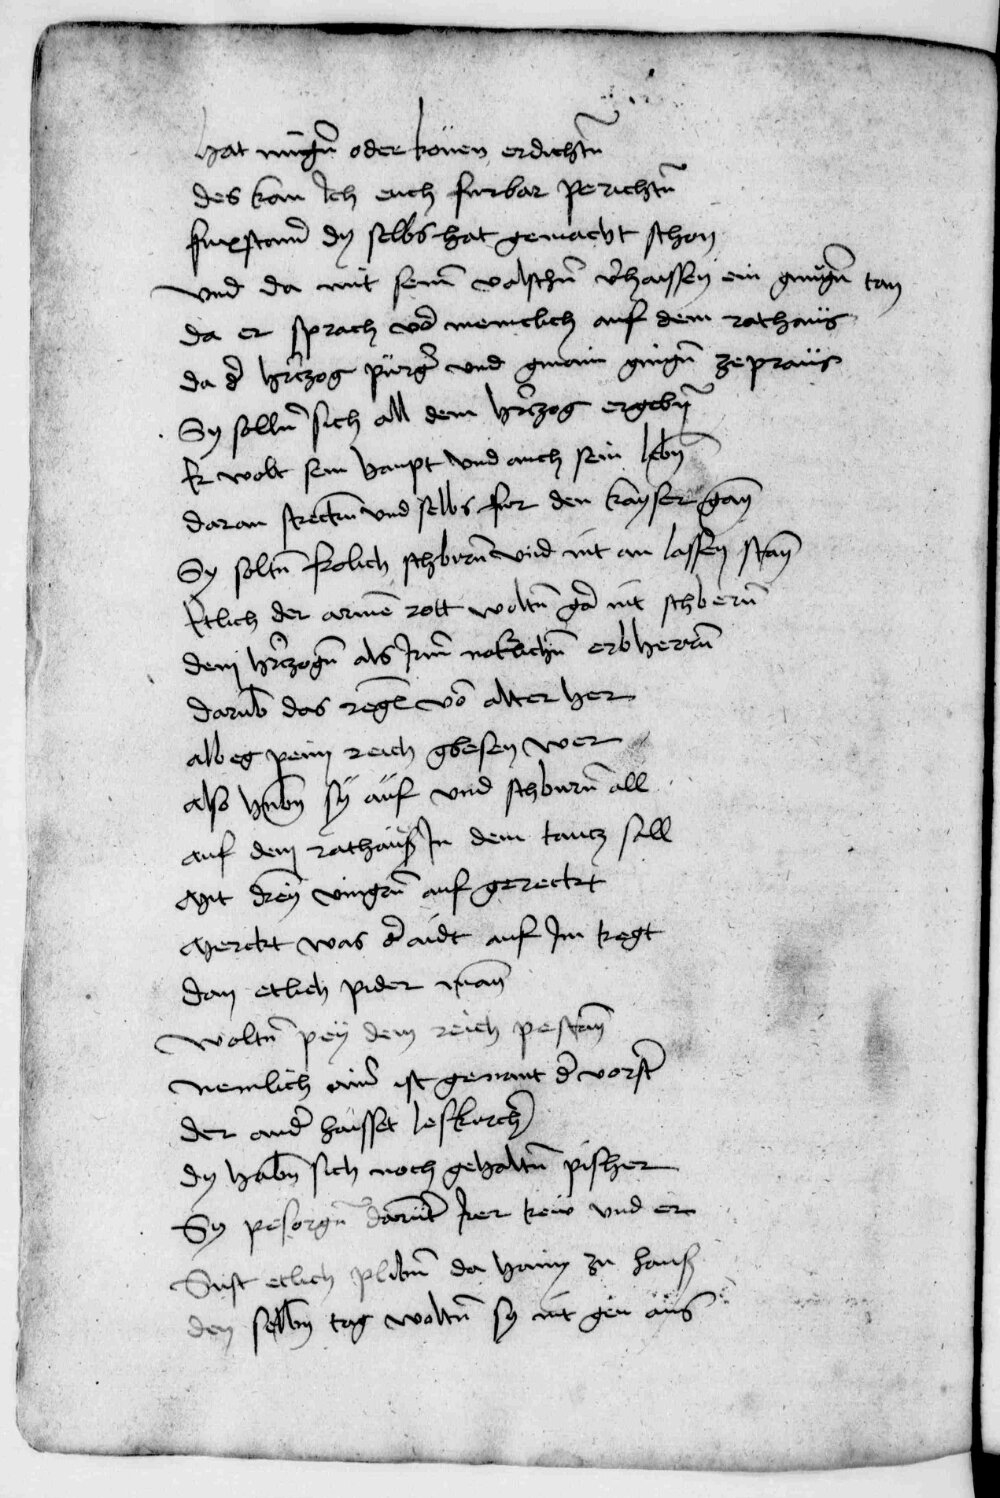 hat mugñ oder köuen erdichtn̄
des kan Ich euch furbar perichtn̄
fuxstainer dy selbs hat gemacht schon
vnd da mit seinē valschn̄ v̓haissen ein gnugn̄ tan
da er sprach vor menklich auf dem rathaüs
da d̓ herczog pürg̓ vnd gmain gingn̄ ze praüs
Sy solln̄ sich all dem herczog ergebn̄
Er wolt sein haupt vnd auch sein lebn̄
daran streckn̄ vnd selbs fur den kayser gan̄
Sy soltn̄ frolich schbern̄ vnd nit an lassen stan̄
Etlich der armē rott woltn̄ gar nit schbern̄
dem herczogn̄ als Irm̄ erbherrn̄
darub̄ das regen̄ vō alter her
albeg peim reich gbesen wer
also hubn̄ sy auf vnd schburn̄ all
auf dem rathaüs In dem tancz sall
Mit dreyn̄ vingrn̄ auf gereckt
Merckt was d̓ aidt auf Im tregt
dan etlich pider man̄
woltn̄ pey dem reich pestan̄
nemlich ain̓ ist genant d̓ vorst̓
der and̓ haisset leskirch̓
dy habn̄ sich noch gehaltn̄ pisher
Sy pesorgn̄ darunt̓ Irer trew vnd er
Sust etlich plibn̄ da haim zu haus
den selbn̄ tag woltn̄ sy nit gen aüs